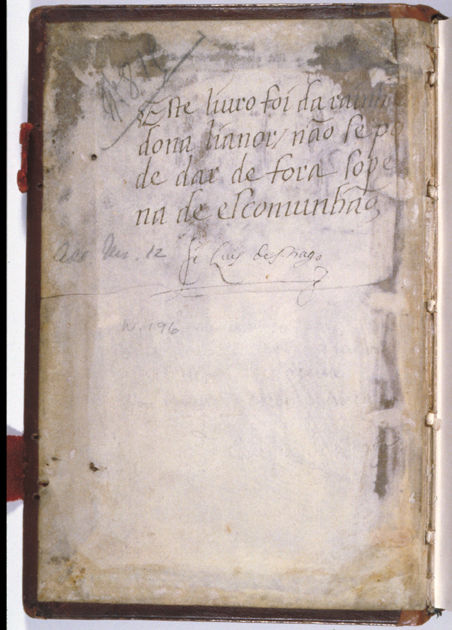 Este liuro foi da rainha
dona lianor, não se po
de dar de fora sope
na de escomunhão
fr Luis de S.tiago
W. 196